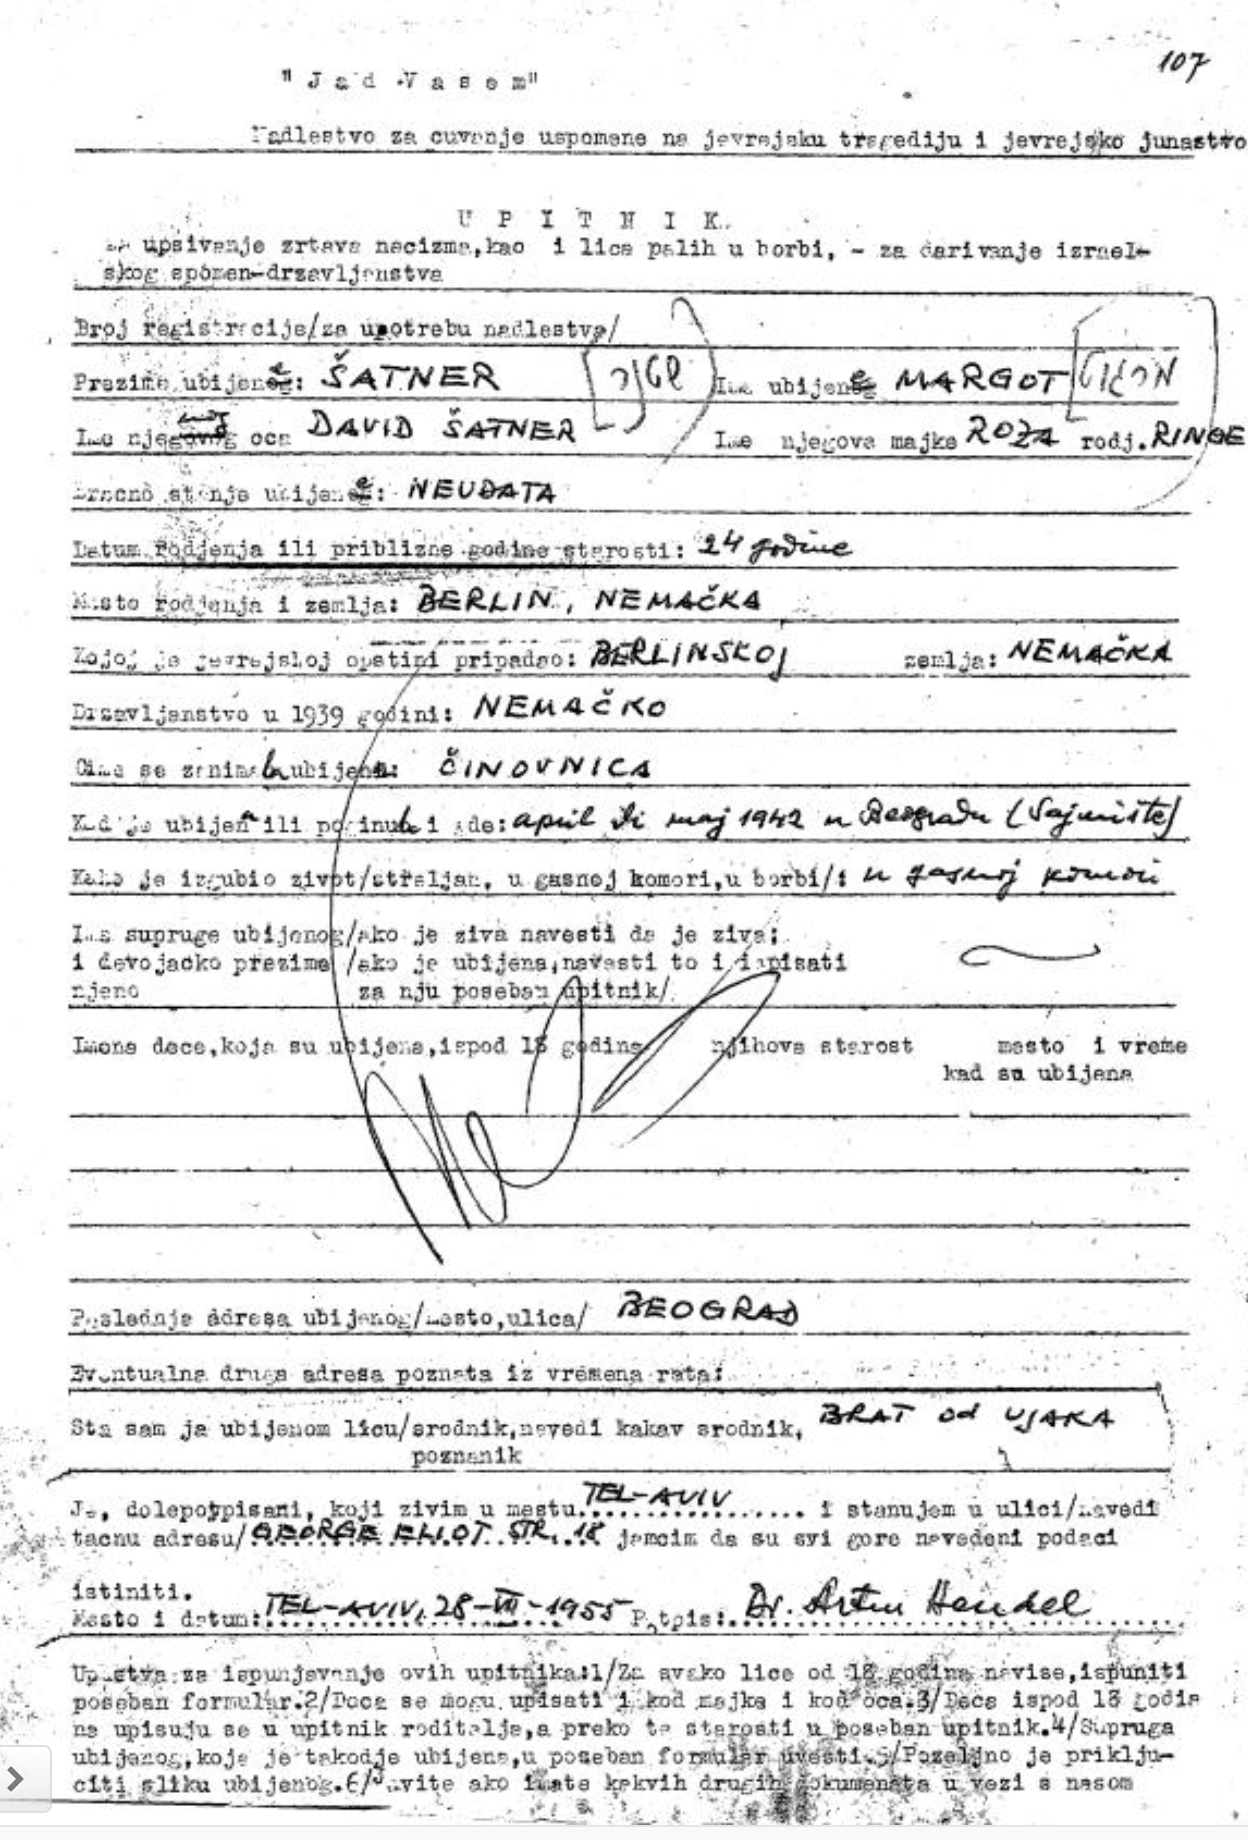 107
"Jad Vasem"
Nadlestvo za cuvanje uspomene na jevrejsku tragediju i jevrejsko junastvo
UPITNIK
za upsivanje zrtava nacizma, kao i lica palih u borbi, - za darivanje izrael-
skog spomen-drzavljanstva
Broj registracije/za upotrebu nadlestva/
Prezime ubijene: ŠATNER Ime ubijene MARGOT מרגוט
Ime njenog oca DAVID ŠATNER Ime njegove majke ROZA rodj. RINGE
Bracno stanje ubijene: NEUDATA
Datum rodjenja ili priblizne godine starosti: 24 godine
Mesto rodjenja i zemlja: BERLIN, NEMAČKA
Kojoj je jevrejskoj opstini pripadao: BERLINSKOJ zemlja: NEMAČKA
Drzavljanstvo u 1939 godini: NEMAČKO
Cime se zanimala ubijena: ČINOVNICA
Kad je ubijena ili poginula i gde: april ili maj 1942 u Beogradu (Sajmište)
Kako je izgubio zivot/streljan, u gasnoj komori, u borbi/: u gasnoj komori
Ime supruge ubijenog/ako je ziva navesti da je ziva;
i devojacko prezime /ako je ubijena, navesti to i ispisati
njeno za nju poseban upitnik/
Imena dece, koja su ubijena, ispod 18 godina njihova starost mesto i vreme
kad su ubijena
Poslednja adresa ubijenog/mesto, ulica/ BEOGRAD
Eventualna druga adresa poznata iz vremena rata:
Sta sam ja ubijenom licu/srodnik, navedi kakav srodnik, BRAT od UJAKA
poznanik
Ja, dolepotpisani, koji zivim u mestu TEL-AVIV i stanujem u ulici/navedi
tacnu adresu/ GEORGE ELIOT STR. 18 jamcim da su svi gore navedeni podaci
istiniti.
Mesto i datum: TEL-AVIV, 28-VII-1955 Potpis: Dr. Artur Hendel
Upustva za ispunjavanje ovih upitnika:1/Za svako lice od 18 godina navise, ispuniti
poseban formular.2/Deca se mogu upisati i kod majke i kod oca.3/Deca ispod 18 godi
na upisuju se u upitnik roditelja, a preko te starosti u poseban upitnik.4/Supruga
ubijenog, koja je takodje ubijena, u poseban formular uvesti.5/Pozeljno je priklju-
citi sliku ubijenog.6/Javite ako imate kakvih drugih dokumenata u vezi s nasom